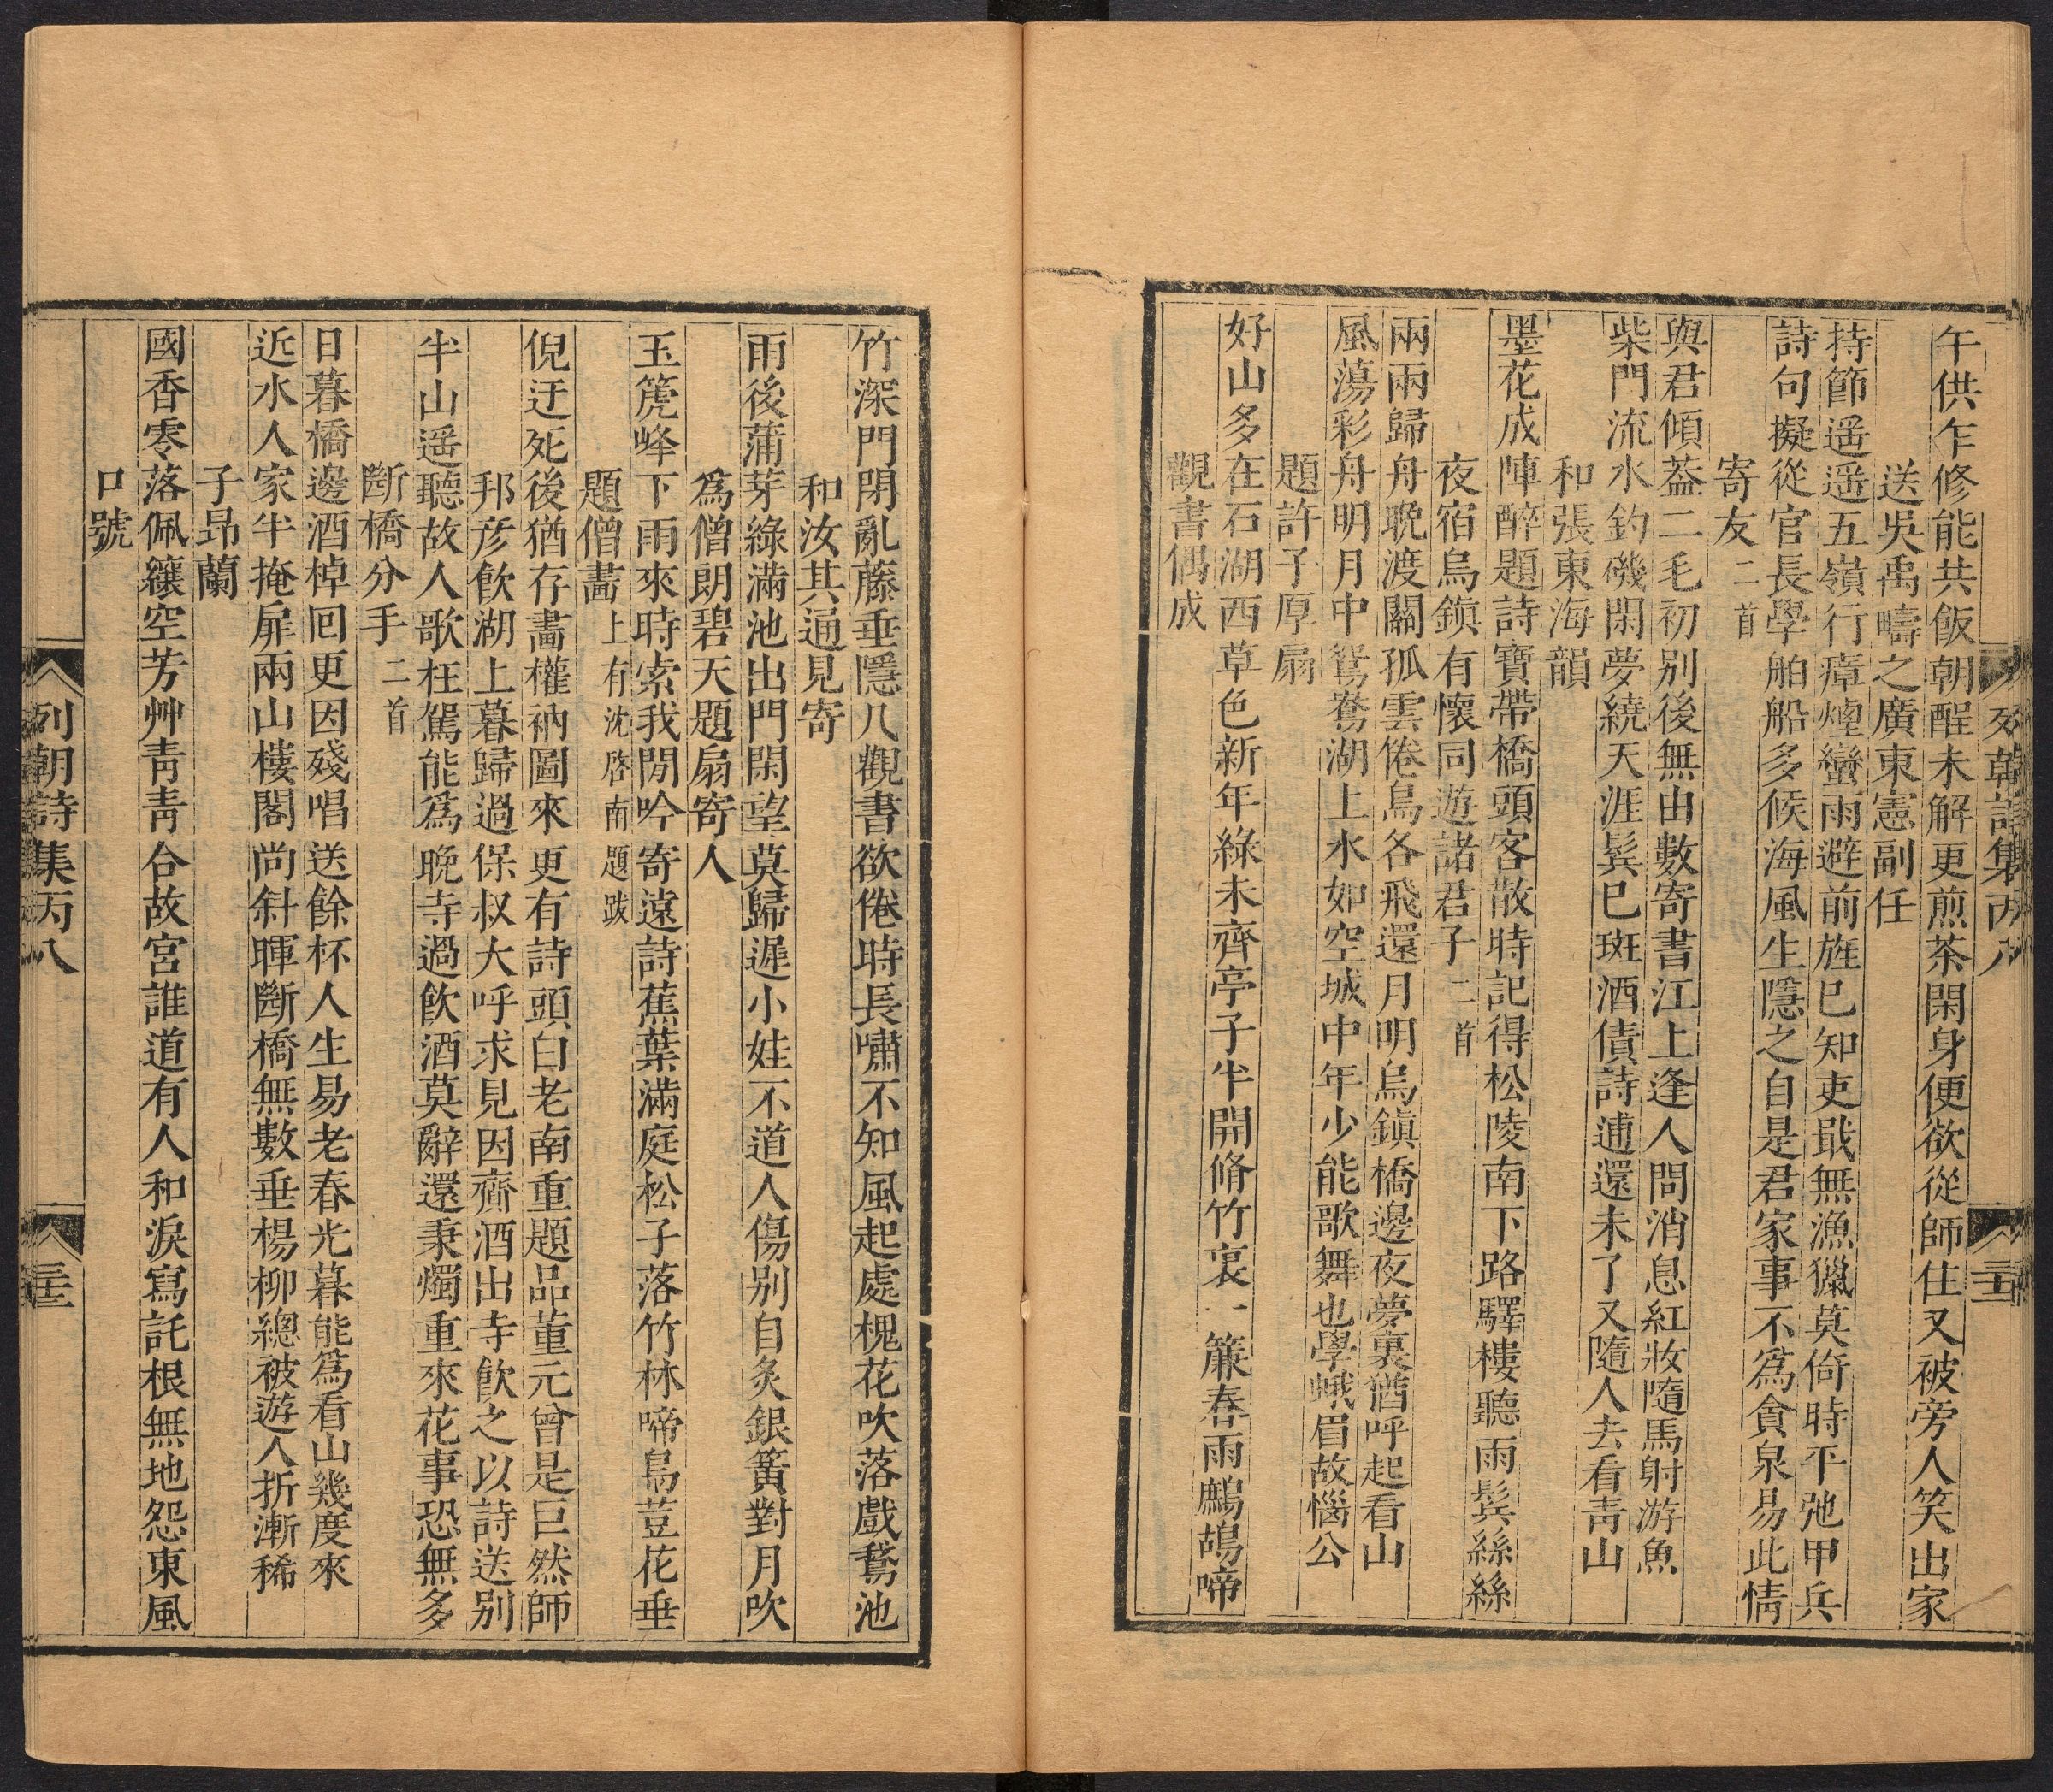 午供乍修能共飯朝酲未解更煎茶閑身便欲從師住又被旁人笑出家
送吳禹疇之廣東憲副任
持節遥遥五嶺行瘴煙蠻雨避前旌巳知吏戢無漁獵莫倚時平弛甲兵
詩句擬從官長學舶船多候海風生隱之自是君家事不爲貪泉易此情
寄友二首
與君傾葢二毛初别後無由數寄書江上逢人問消息紅妝隨馬射游魚
柴門流水釣磯閑夢繞天涯鬂巳斑酒債詩逋還未了又隨人去看靑山
和張東海韻
墨花成陣醉題詩寶帶橋頭客散時記得松陵南下路驛樓聽雨鬂絲絲
夜宿烏鎭有懷同遊諸君子二首
兩兩歸舟晚渡關孤雲倦鳥各飛還月明烏鎭橋邊夜夢裏猶呼起看山
風蕩彩舟明月中鴛鴦湖上水如空城中年少能歌舞也學蛾眉故惱公
題許子厚扇
好山多在石湖西草色新年綠未齊亭子半開脩竹裏一簾春雨鷓鴣啼
觀書偶成
竹深門閉亂藤垂隱几觀書欲倦時長嘯不知風起處槐花吹落戲鵞池
和汝其通見寄
雨後蒲芽綠滿池出門閑望莫歸遲小娃不道人傷别自炙銀簧對月吹
爲僧朗碧天題扇寄人
玉箎峰下雨來時索我閒吟寄遠詩蕉葉滿庭松子落竹林啼鳥荳花垂
題僧畵上有沈啓南題跋
倪迂死後猶存畵權衲圖來更有詩頭白老南重題品董元曾是巨然師
邦彦飮湖上暮歸過保叔大呼求見因齎酒出寺飮之以詩送别
半山遥聽故人歌枉駕能爲晚寺過飮酒莫辭還秉燭重來花事恐無多
斷橋分手二首
日暮橋邊酒棹回更因殘唱送餘杯人生易老春光暮能爲看山幾度來
近水人家半掩扉兩山樓閣尚斜暉斷橋無數垂楊柳總被遊人折漸稀
子昂蘭
國香零落佩纕空芳艸靑靑合故宮誰道有人和淚寫託根無地怨東風
口號
列朝詩集丙八